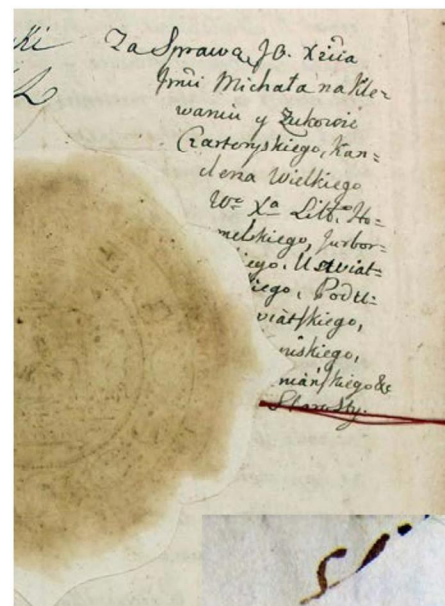 Za Sprawą JO. Xcia
Jmci Michała na Kle-
waniu y Żukowie
Czartoryskiego, Kan=
clerza Wielkiego
Wo Xa Litt. Ho-
melskiego, Jurbor-
Uswiat-
kiego, Podu-
swiatskiego,
niskiego,
niańskiego &c
Starosty.